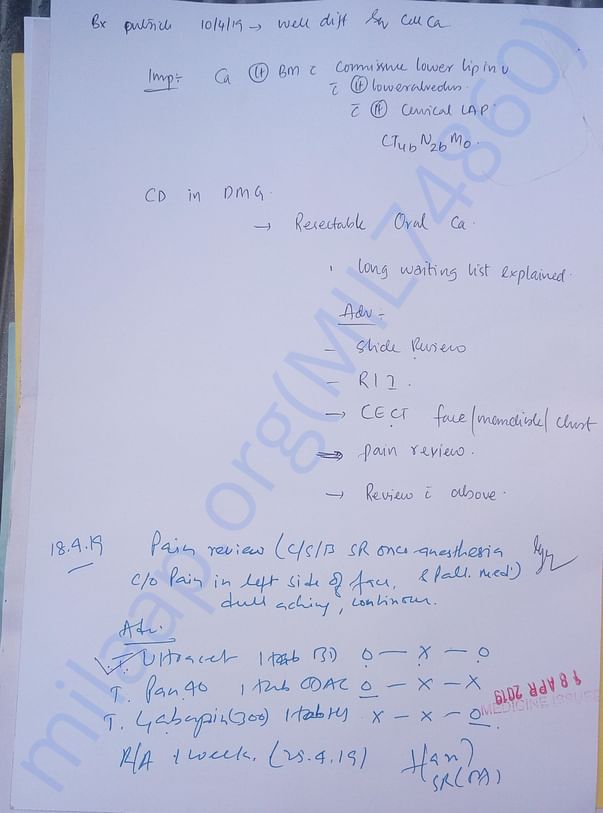 Bx outside 10/4/19 → well diff Sq Cell Ca
Imp:- Ca (Lt) BM c̄ Commissure lower lip inv
c̄ (Lt) lower alveolus.
c̄ (Lt) Cervical LAP.
CT4b N2b M0.
CD in DMG.
→ Resectable Oral Ca.
long waiting list explained.
Adv:-
- Slide Review
- RIL.
→ CECT face/mandible/chest
⇒ pain review.
→ Review c̄ above.
18.4.19 Pain review (C/S/B SR onco-anesthesia
& Pall. Med)
c/o Pain in left side of face,
dull aching, continuous.
Adv.
T. Ultracet 1 tab BD O — X — O
T. Pan 40 1 tab OD AC O — X — X
T. Gabapin (300) 1 tab HS X — X — O
R/A 1 week. (25.4.19)
18 APR 2019
MEDICINE ISSUED
milaap.org(MIL74860)